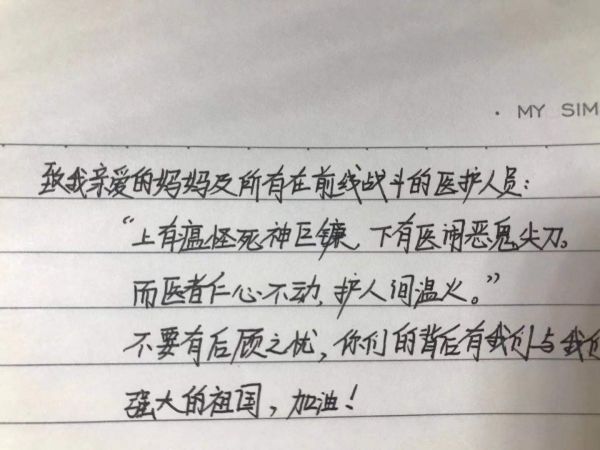 · MY SIM
致我亲爱的妈妈及所有在前线战斗的医护人员:
“上有瘟怪死神巨镰,下有医闹恶鬼尖刀。
而医者仁心不动,护人间温火。”
不要有后顾之忧,你们的背后有我们与我们
强大的祖国,加油!